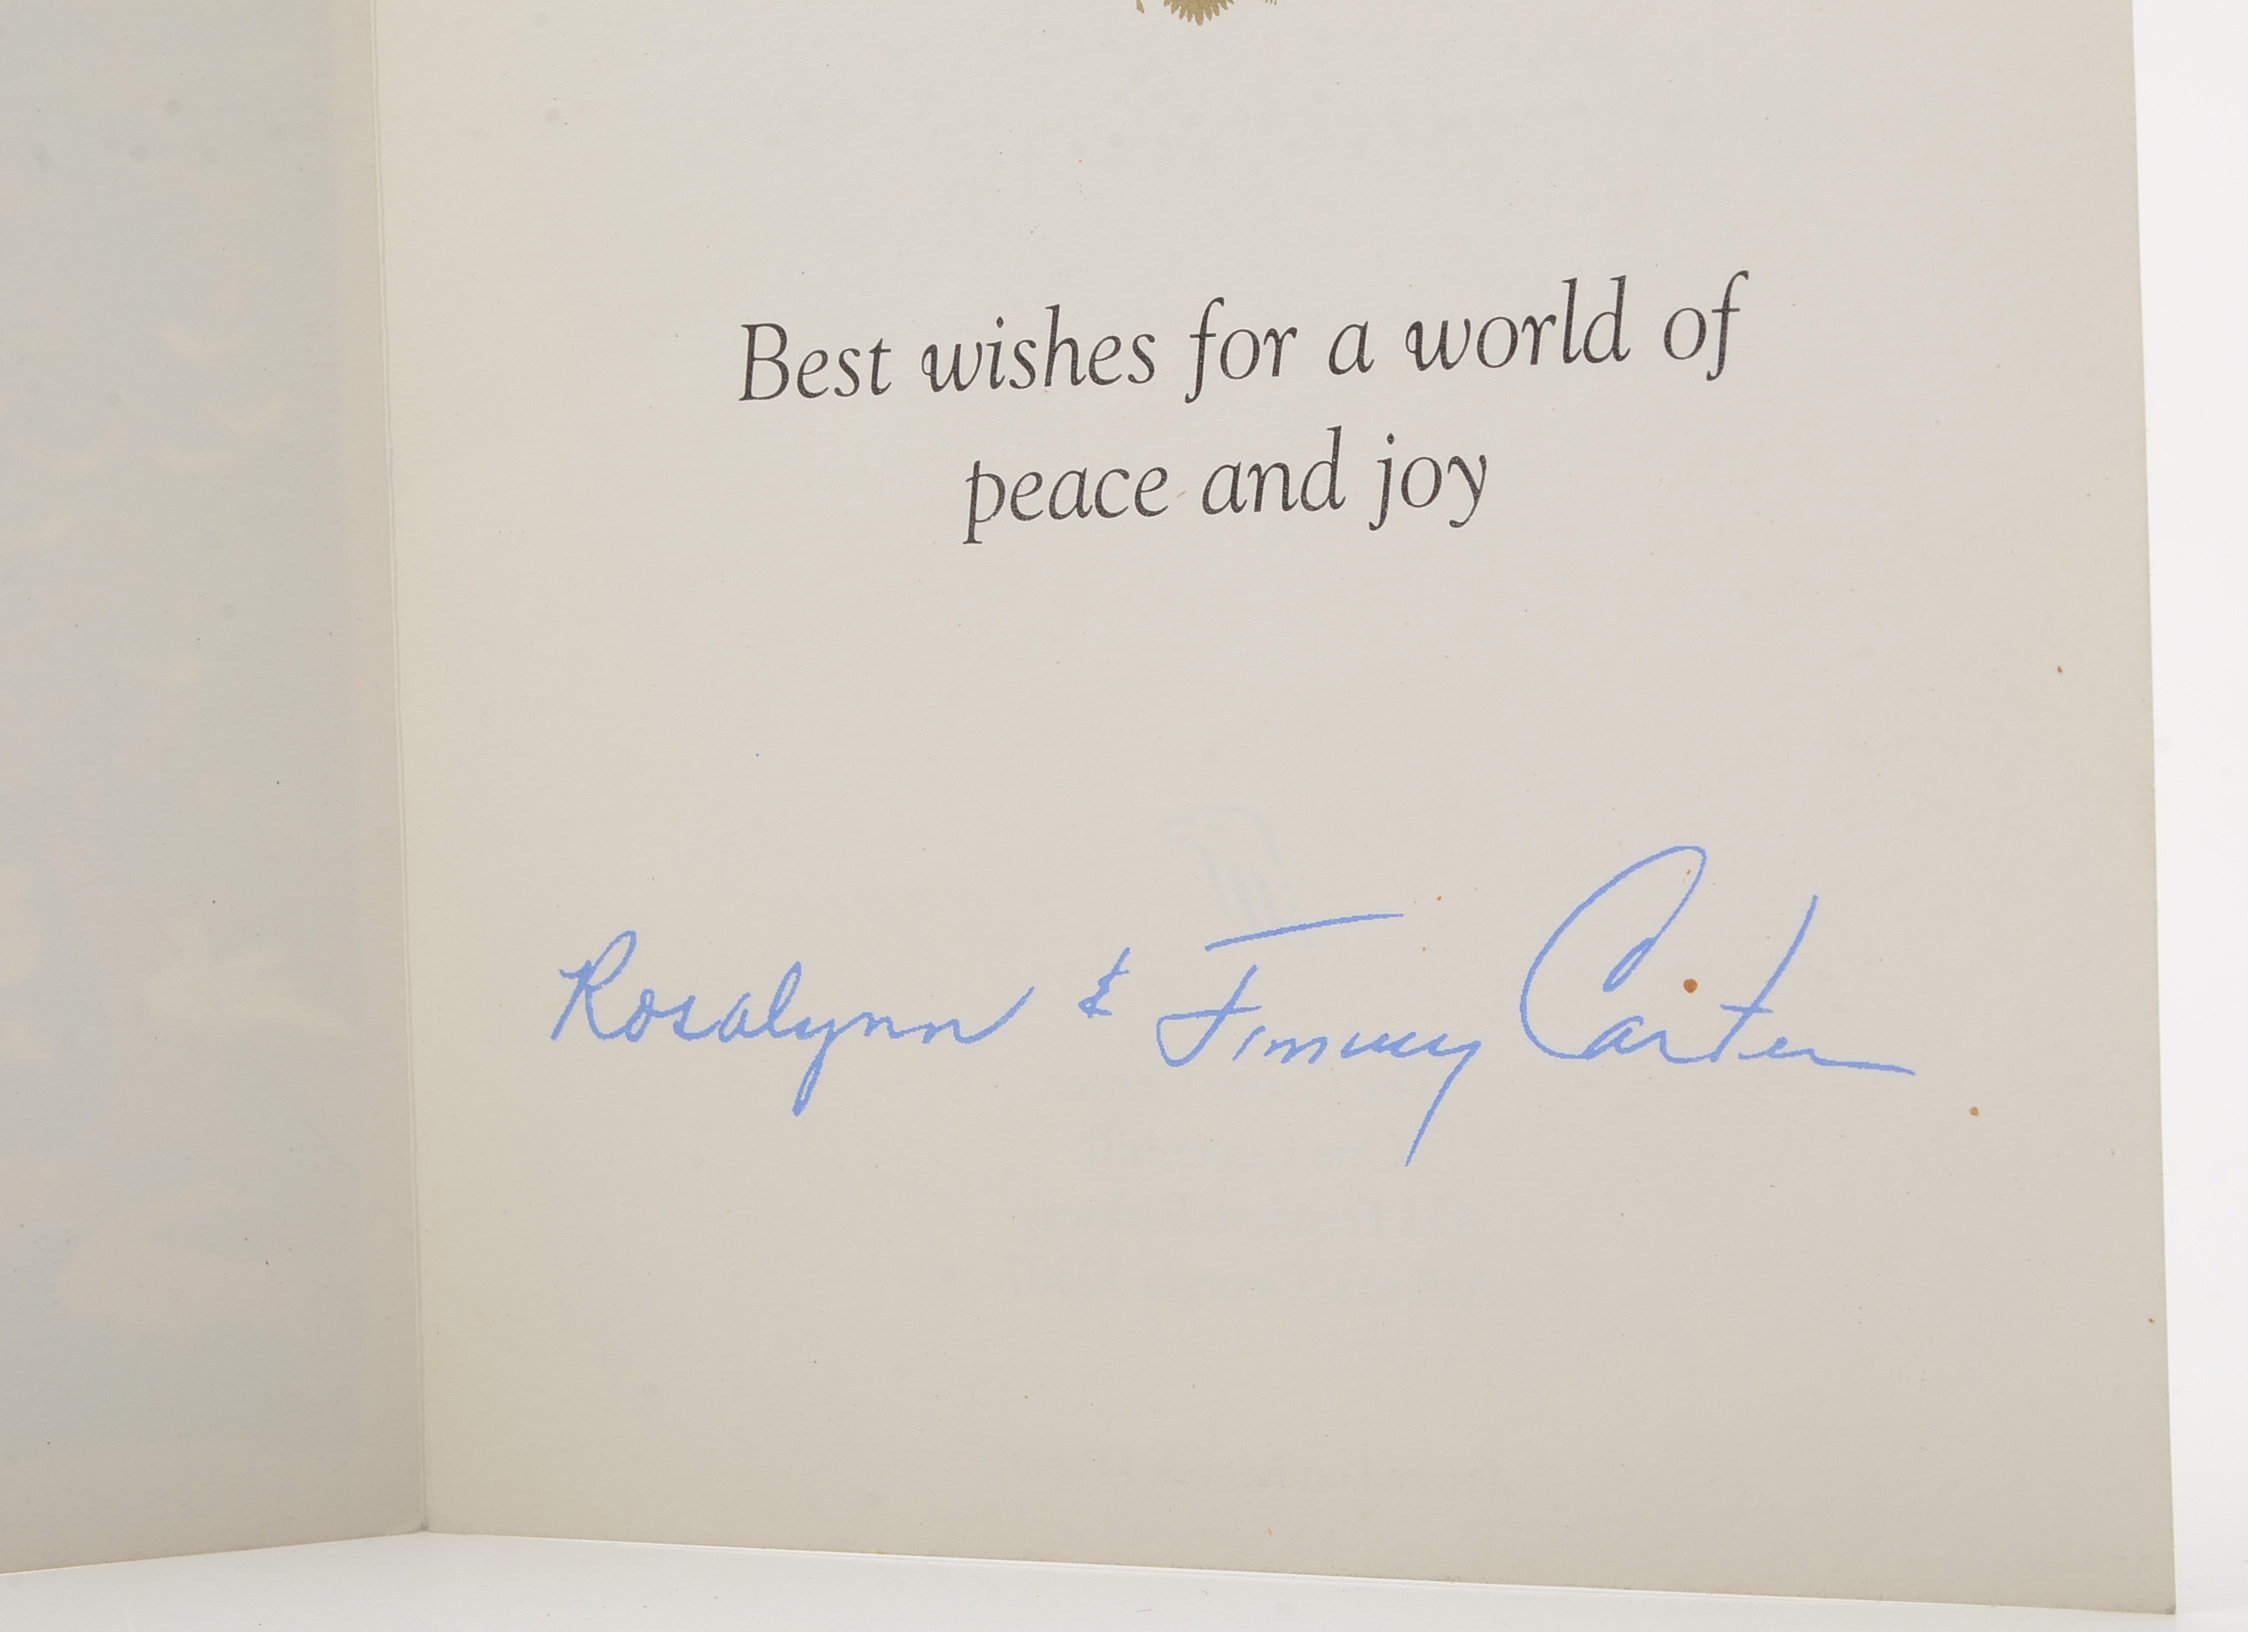 Best wishes for a world of
peace and joy
Rosalynn & Jimmy Carter